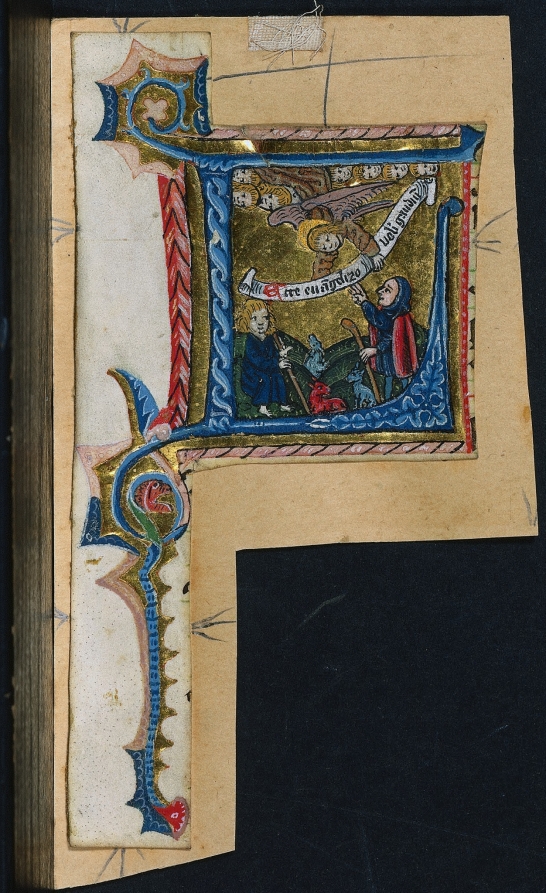 Ecce euāgelizo
uobis gaudiū